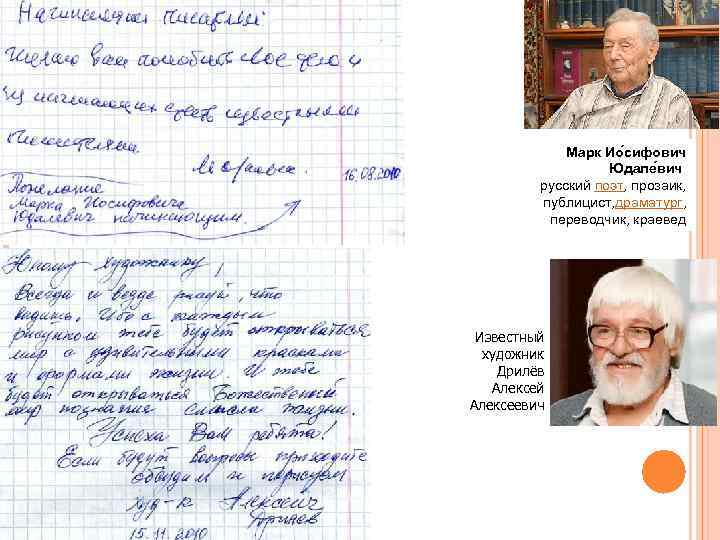 Начинающим писателям
Желаю вам полюбить свое дело и
из начинающих стать известными
писателями.
16.08.2010
Пожелание
Марка Иосифовича
Юдалевич начинающим.
Марк Ио́сифович
Юдале́вич
русский поэт, прозаик,
публицист, драматург,
переводчик, краевед
Юному художнику!
Всегда и везде рисуй, что
видишь. Ибо с каждым
рисунком тебе будет открываться
мир с удивительными красками
и формами жизни. И тебе
будет открываться Божественный
мир познание смысла жизни.
Успеха Вам ребята!
Если будут вопросы приходите
обсудим и порисуем
худ-к Алексей
Дрилев
15.11.2010
Известный
художник
Дрилёв
Алексей
Алексеевич